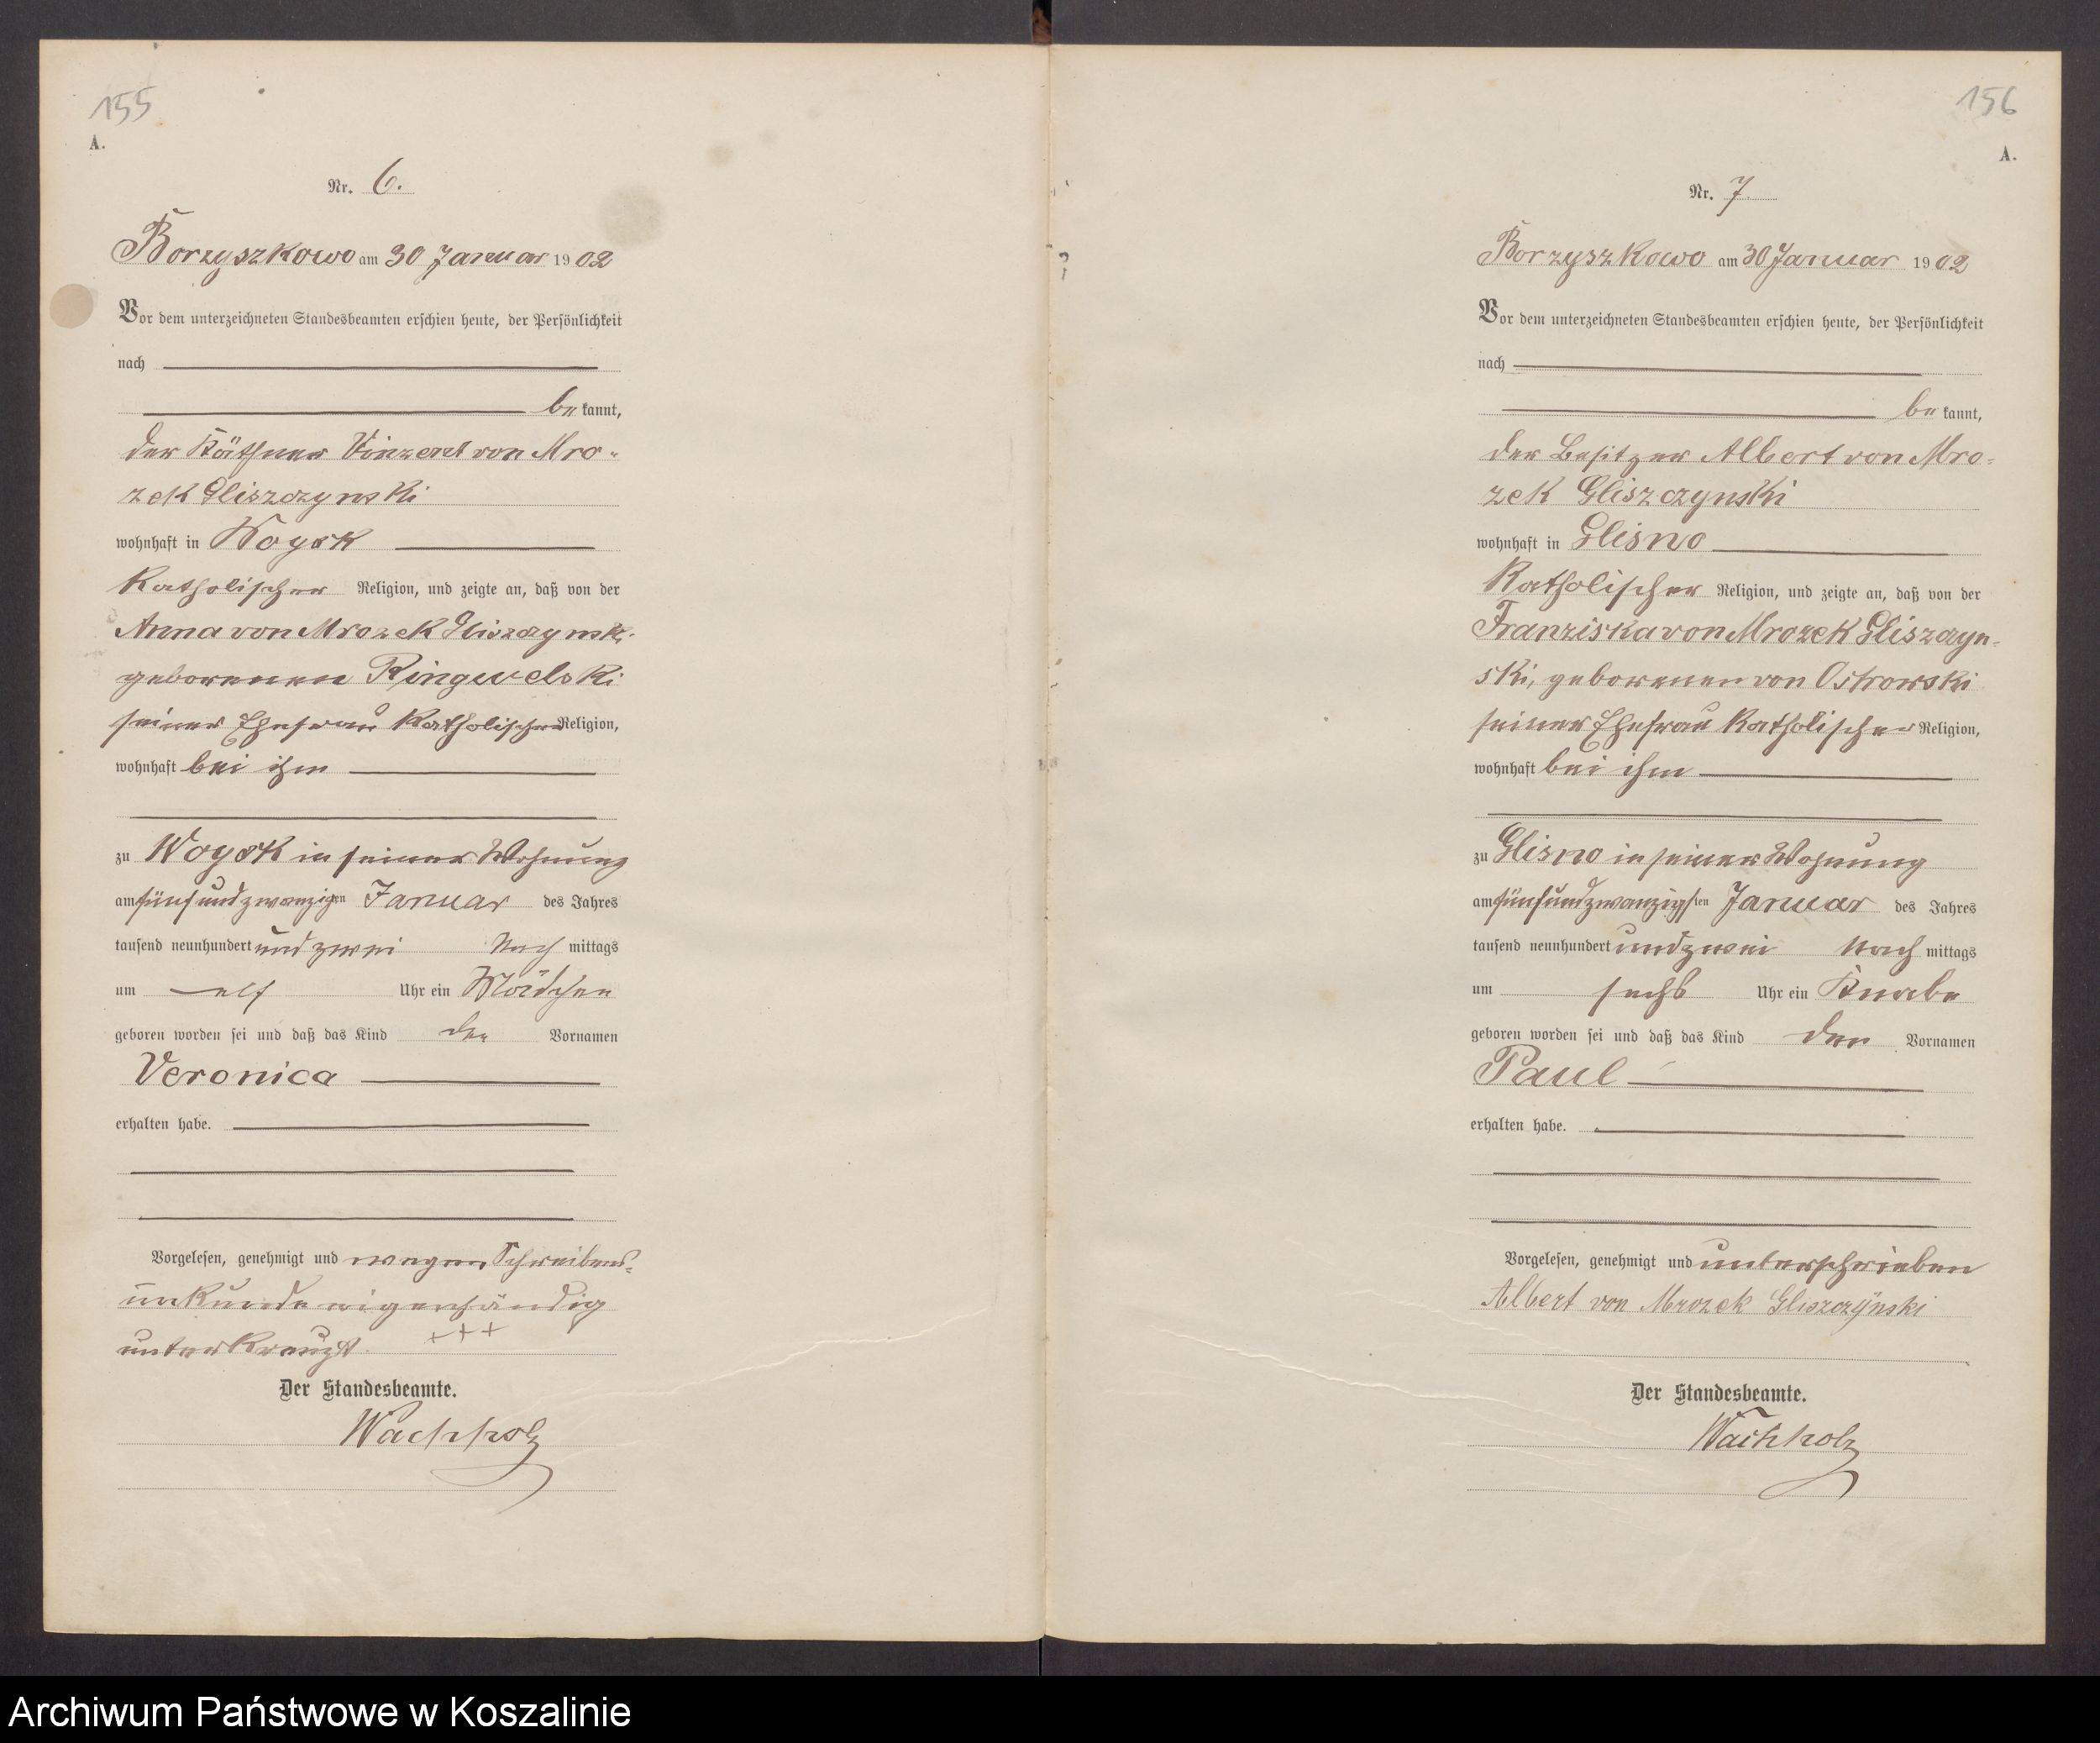 155
A.
Nr. 6.
Borzyszkowo am 30 Januar 1902
Vor dem unterzeichneten Standesbeamten erschien heute, der Persönlichkeit
nach
be kannt,
der Käthner Vinzent von Mro-
zek Gliszczynski
wohnhaft in Woysk
katholischer Religion, und zeigte an, daß von der
Anna von Mrozek Gliszczynski
geborenen Ringwelski
seiner Ehefrau katholischer Religion,
wohnhaft bei ihm
zu Woysk in seiner Wohnung
am fünfundzwanzigsten Januar des Jahres
tausend neunhundert und zwei Nach mittags
um elf Uhr ein Mädchen
geboren worden sei und daß das Kind den Vornamen
Veronica
erhalten habe.
Vorgelesen, genehmigt und wegen Schreibens-
unkunde eigenhändig
unterkreuzt. +++
Der Standesbeamte.
Wachholz
156
A.
Nr. 7.
Borzyszkowo am 30 Januar 1902
Vor dem unterzeichneten Standesbeamten erschien heute, der Persönlichkeit
nach
be kannt,
der Besitzer Albert von Mro-
zek Gliszczynski
wohnhaft in Glisno
katholischer Religion, und zeigte an, daß von der
Franziska von Mrozek Gliszczyn-
ski, geborenen von Ostrowski
seiner Ehefrau katholischer Religion,
wohnhaft bei ihm
zu Glisno in seiner Wohnung
am fünfundzwanzigsten Januar des Jahres
tausend neunhundert und zwei Nach mittags
um sechs Uhr ein Knabe
geboren worden sei und daß das Kind den Vornamen
Paul
erhalten habe.
Vorgelesen, genehmigt und unterschrieben
Albert von Mrozek Gliszczÿnski
Der Standesbeamte.
Wachholz
Archiwum Państwowe w Koszalinie